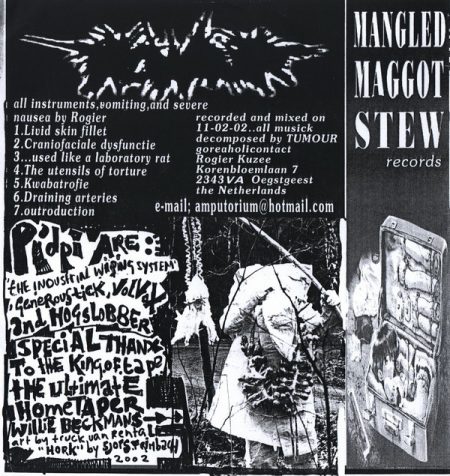 all instruments,vomiting,and severe
nausea by Rogier
1.Livid skin fillet
2.Craniofaciale dysfunctie
3...used like a laboratory rat
4.The utensils of torture
5.Kwabatrofie
6.Draining arteries
7.outroduction
recorded and mixed on
11-02-02..all musick
decomposed by TUMOUR
goreaholicontact
Rogier Kuzee
Korenbloemlaan 7
2343VA Oegstgeest
the Netherlands
e-mail; amputorium@hotmail.com
MANGLED
MAGGOT
STEW
records
Pidpi ARE:
"THE INDUSTRIAL WARNING SYSTEM"
, GENEROUSTICK, VOLVET
and HOGSLOBBER
SPECIAL THANX
To THE KING of TAPE
THE ULTIMATE
HOMETAPER
WILLIE BECKMANS
art by truck van Rental
"HORK" by Sjors Trimbach
2002